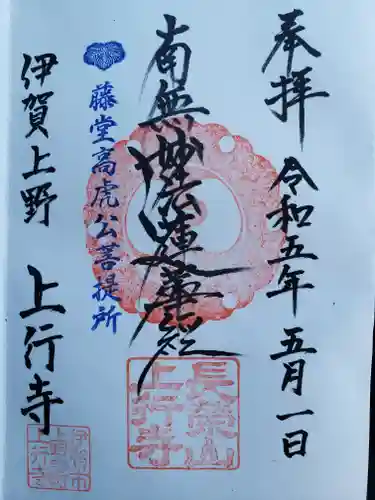 奉拝 令和五年 五月一日
南無妙法蓮華経
藤堂高虎公菩提所
伊賀上野 上行寺
長榮山
上行寺